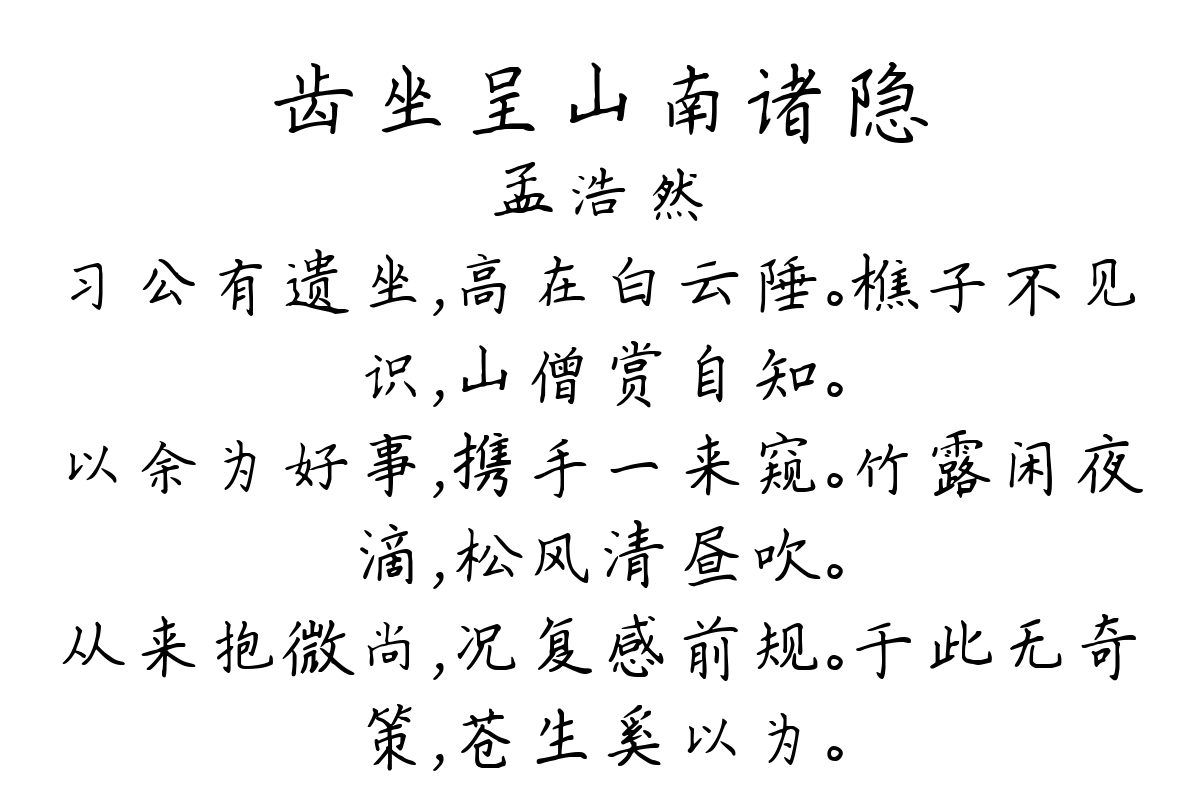 齿坐呈山南诸隐
孟浩然
习公有遗坐,高在白云陲。樵子不见
识,山僧赏自知。
以余为好事,携手一来窥。竹露闲夜
滴,松风清昼吹。
从来抱微尚,况复感前规。于此无奇
策,苍生奚以为。